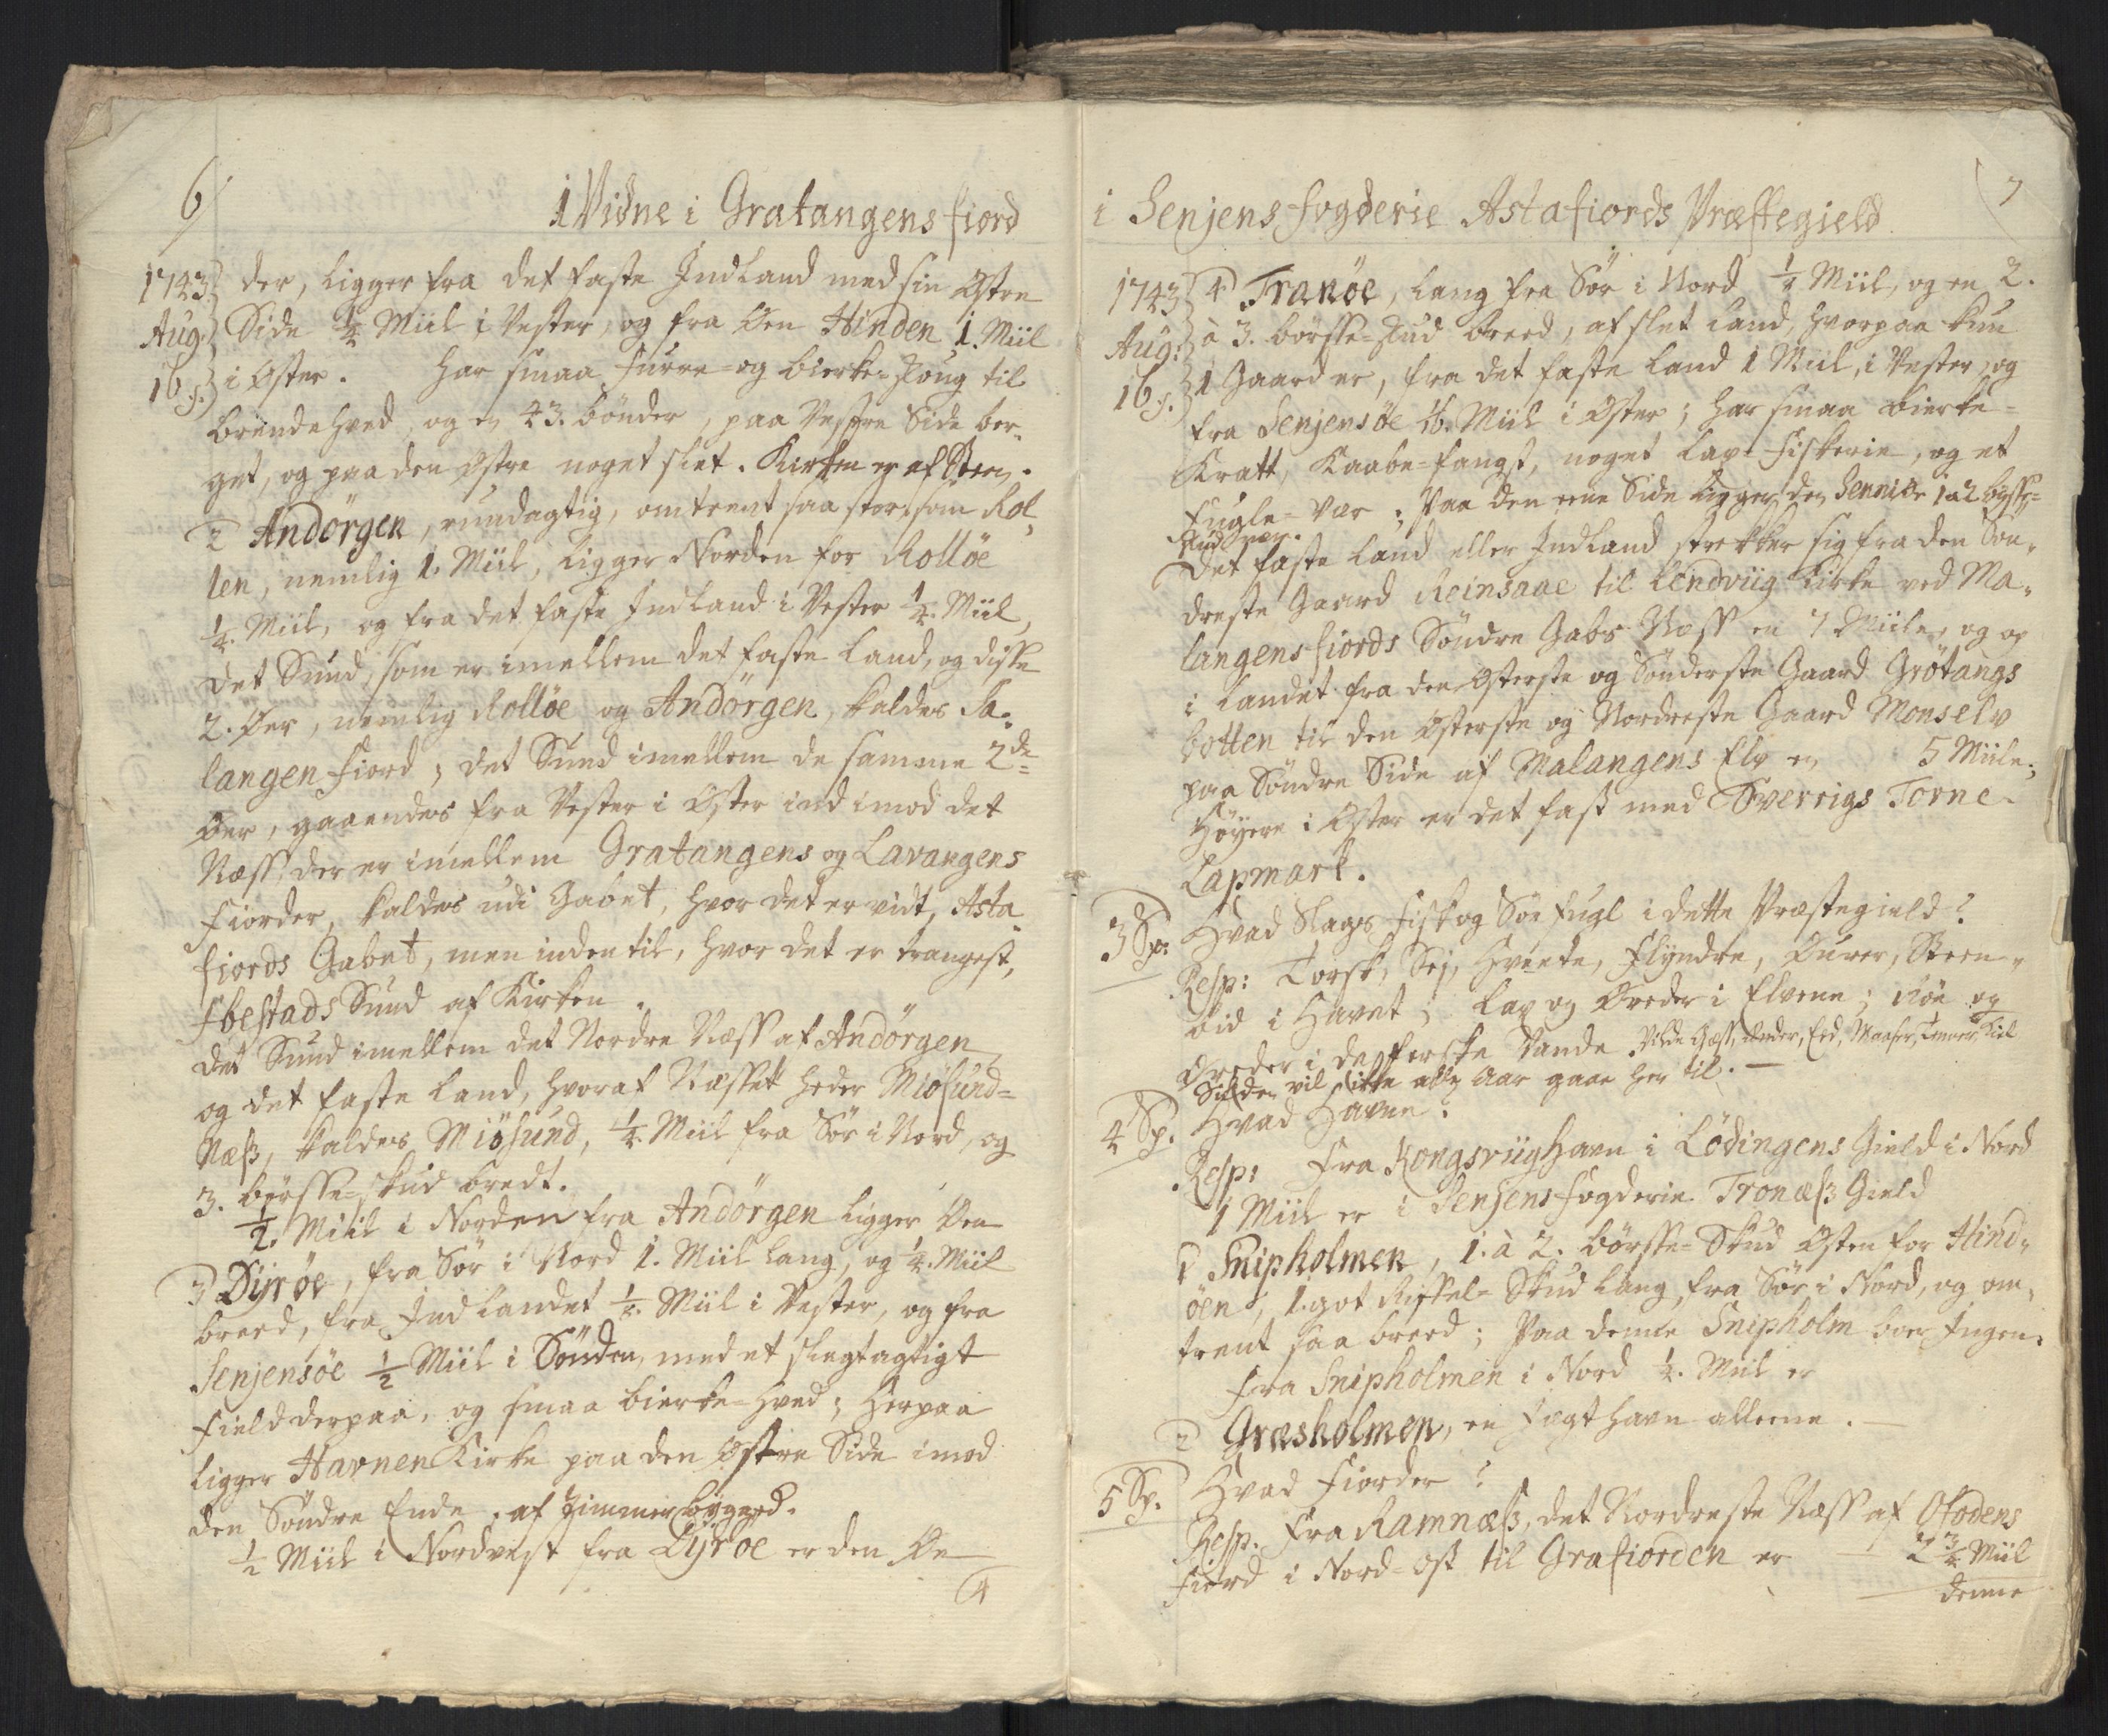 6
1 Vidne i Gratangens fiord
1743 der, ligger fra det faste Indland med sin Østre
Aug: Side ¼ Miil i Vester, og fra Øen Hinden 1. Miil
16 i Øster. Har smaa Furre- og bierke-skoug til
brændehved, og er 43. bønder, paa Vestre Side ber-
get, og paa den Østre noget slet. Kirken er af Steen.
2 Andörgen, rundagtig, omtrent saa stor, som Rol-
len, nemlig 1. Miil, ligger Norden for Rolløe
¼. Miil, og fra det faste Indland i Vester ¼. Miil,
det Sund, som er imellem det faste Land, og disse
2. Øer, nemlig Rolløe og Andörgen, kaldes Sa-
langen Fiord; det Sund imellem de samme 2de
Øer, gaaendes fra Vester i Øster ind imod det
Næss der er imellem Gratangens og Lavangens
Fiorder, kaldes udi Gabet, hvor det er vidt, Asta-
fiords Gabet, men inden til, hvor det er trangest,
Ibestads Sund af Kirken.
Det Sund imellem det Nordre Næss af Andörgen
og det faste Land, hvoraf Næsset heder Miösund-
Næß, kaldes Miösund, ¼. Miil fra Sör i Nord, og
3. børsse-skud bredt.
½. Miil i Norden fra Andörgen ligger Øen
3 Dyrøe, fra Sör i Nord 1. Miil lang, og ¼. Miil
breed, fra Indlandet ½. Miil i Vester, og fra
Senjensöe ½ Miil i Sönden, med et slegtagtigt
Field derpaa, og smaa bierke-hved; herpaa
ligger Havnen Kirke paa den Østre Side imod
den Søndre Ende, af Timmer bygged.
½ Miil i Nordvest fra Dyröe er den Øe
4
7
i Senjens fogderie Astafiords Præstegield
1743 4 Tranöe, lang fra Sör i Nord ¼ Miil, og en 2.
Aug: à 3. börsse-skud breed, af slet Land, hvorpaa kun
16 1 Gaard er, fra det faste Land 1 Miil, i Vester, og
fra Senjensöe 1/16. Miil i Øster; har smaa bierke-
Kratt, Kaabe-fangst, noget lax-Fiskerie, og et
Fugle-Vær; Paa den eene Side ligger den Senniöe 1 a 2 bysse-
skud nær.
Det faste Land eller Indland strekker sig fra den Søn-
dreste Gaard Reinsaae til Lendviig Kirke ved Ma-
langens fiords Söndre Gabs Næss en 7 Miile, og op
i Landet fra den Østerste og Sönderste Gaard Grötangs
botten til den Østerste og Nordreste Gaard Monselv
paa Söndre Side af Malangens Elv er 5 Miile.
Höyere i Øster er det fast med Sverrigs Torne-
Lapmark.
3 Sp: Hvad Slags Fisk og Söe fugl i dette Præstegield?
Resp: Torsk, Sej, Hveete, Flyndre, Øurer, Steen-
bid i Havet; Lax og Øreder i Elvene; Röe og
Øreder i de ferske Vande. Vilde Gæss, Ænder, Eed, Maaser, Tenner, Kiel
Silden vil ikke alle Aar gaae her til.
4 Sp. Hvad Havne?
Resp: Fra Kongsviighavn i Lödingens Gield i Nord
1 Miil er i Senjens Fogderie Tronæß Gield
1 Snipholmen, 1. à 2. börsse-Skud Østen for Hind-
öen, 1. got Riffel-Skud lang, fra Sör i Nord, og om-
trent saa breed; Paa denne Snipholm boer Ingen.
Fra Snipholmen i Nord ¼. Miil er
2 Græsholmen, en Jægt havn alleene.
5 Sp. Hvad Fiorder?
Resp. Fra Ramnæß, det Nordreste Næss af Ofodens
Fiord i Nord-Ost til Grafiorden er 2 ¾ Miil
denne